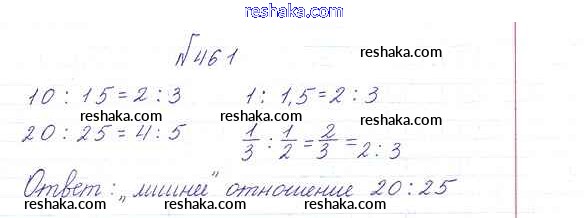 reshaka.com
№461
reshaka.com
10 : 15 = 2 : 3    1 : 1,5 = 2 : 3
reshaka.com    reshaka.com
20 : 25 = 4 : 5    1/3 : 1/2 = 2/3 = 2 : 3
reshaka.com    reshaka.com
Ответ: „лишнее" отношение 20 : 25
reshaka.com    reshaka.com